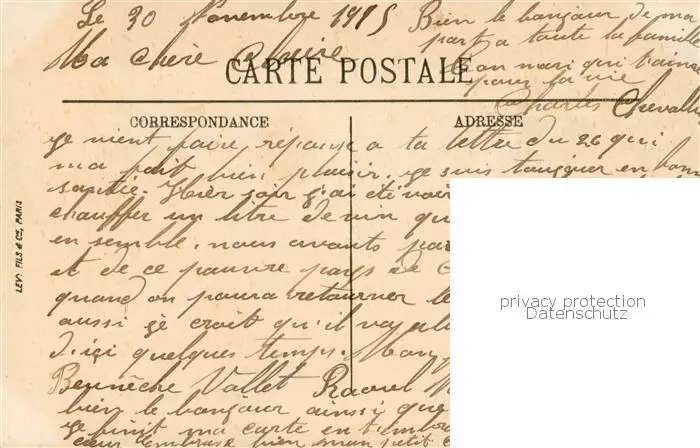 Le 30 Novembre 1915
Ma chère
Bien le bonjour de ma
part a toute la famille
ton mari qui t'aime
pour la vie
Charles Chevallier
CARTE POSTALE
CORRESPONDANCE
ADRESSE
LEVY FILS & Cie, PARIS
Je vient faire réponse a ta lettre du 26 qui
ma fait bien plaisir. je suis toujour en bonne
santie. Hier soir j'ai été voir
chauffer un litre de vin qu
en semble. nous avonts par
et de ce pauvre pays de
quand on poura retourner le
aussi je croit qu'il va
d'içi quelques temps. Mon
Bennèche Vallet Raoul
bien le bonjour ainsi que
Je finit ma carte en t'embra
cœur Embrasse bien mon petit
privacy protection
Datenschutz